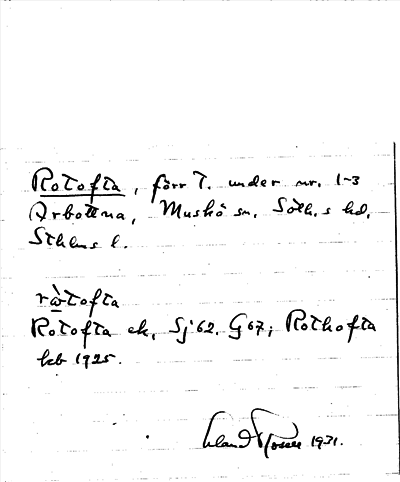 Rotofta, förr T. under nr. 1-3
Årbottna, Muskö sn. Soth.s hd.
Sthlms l.
ròtofta
Rotofta ek. Sj 62. G 67; Rothofta
kb 1925.
Erland 1931.